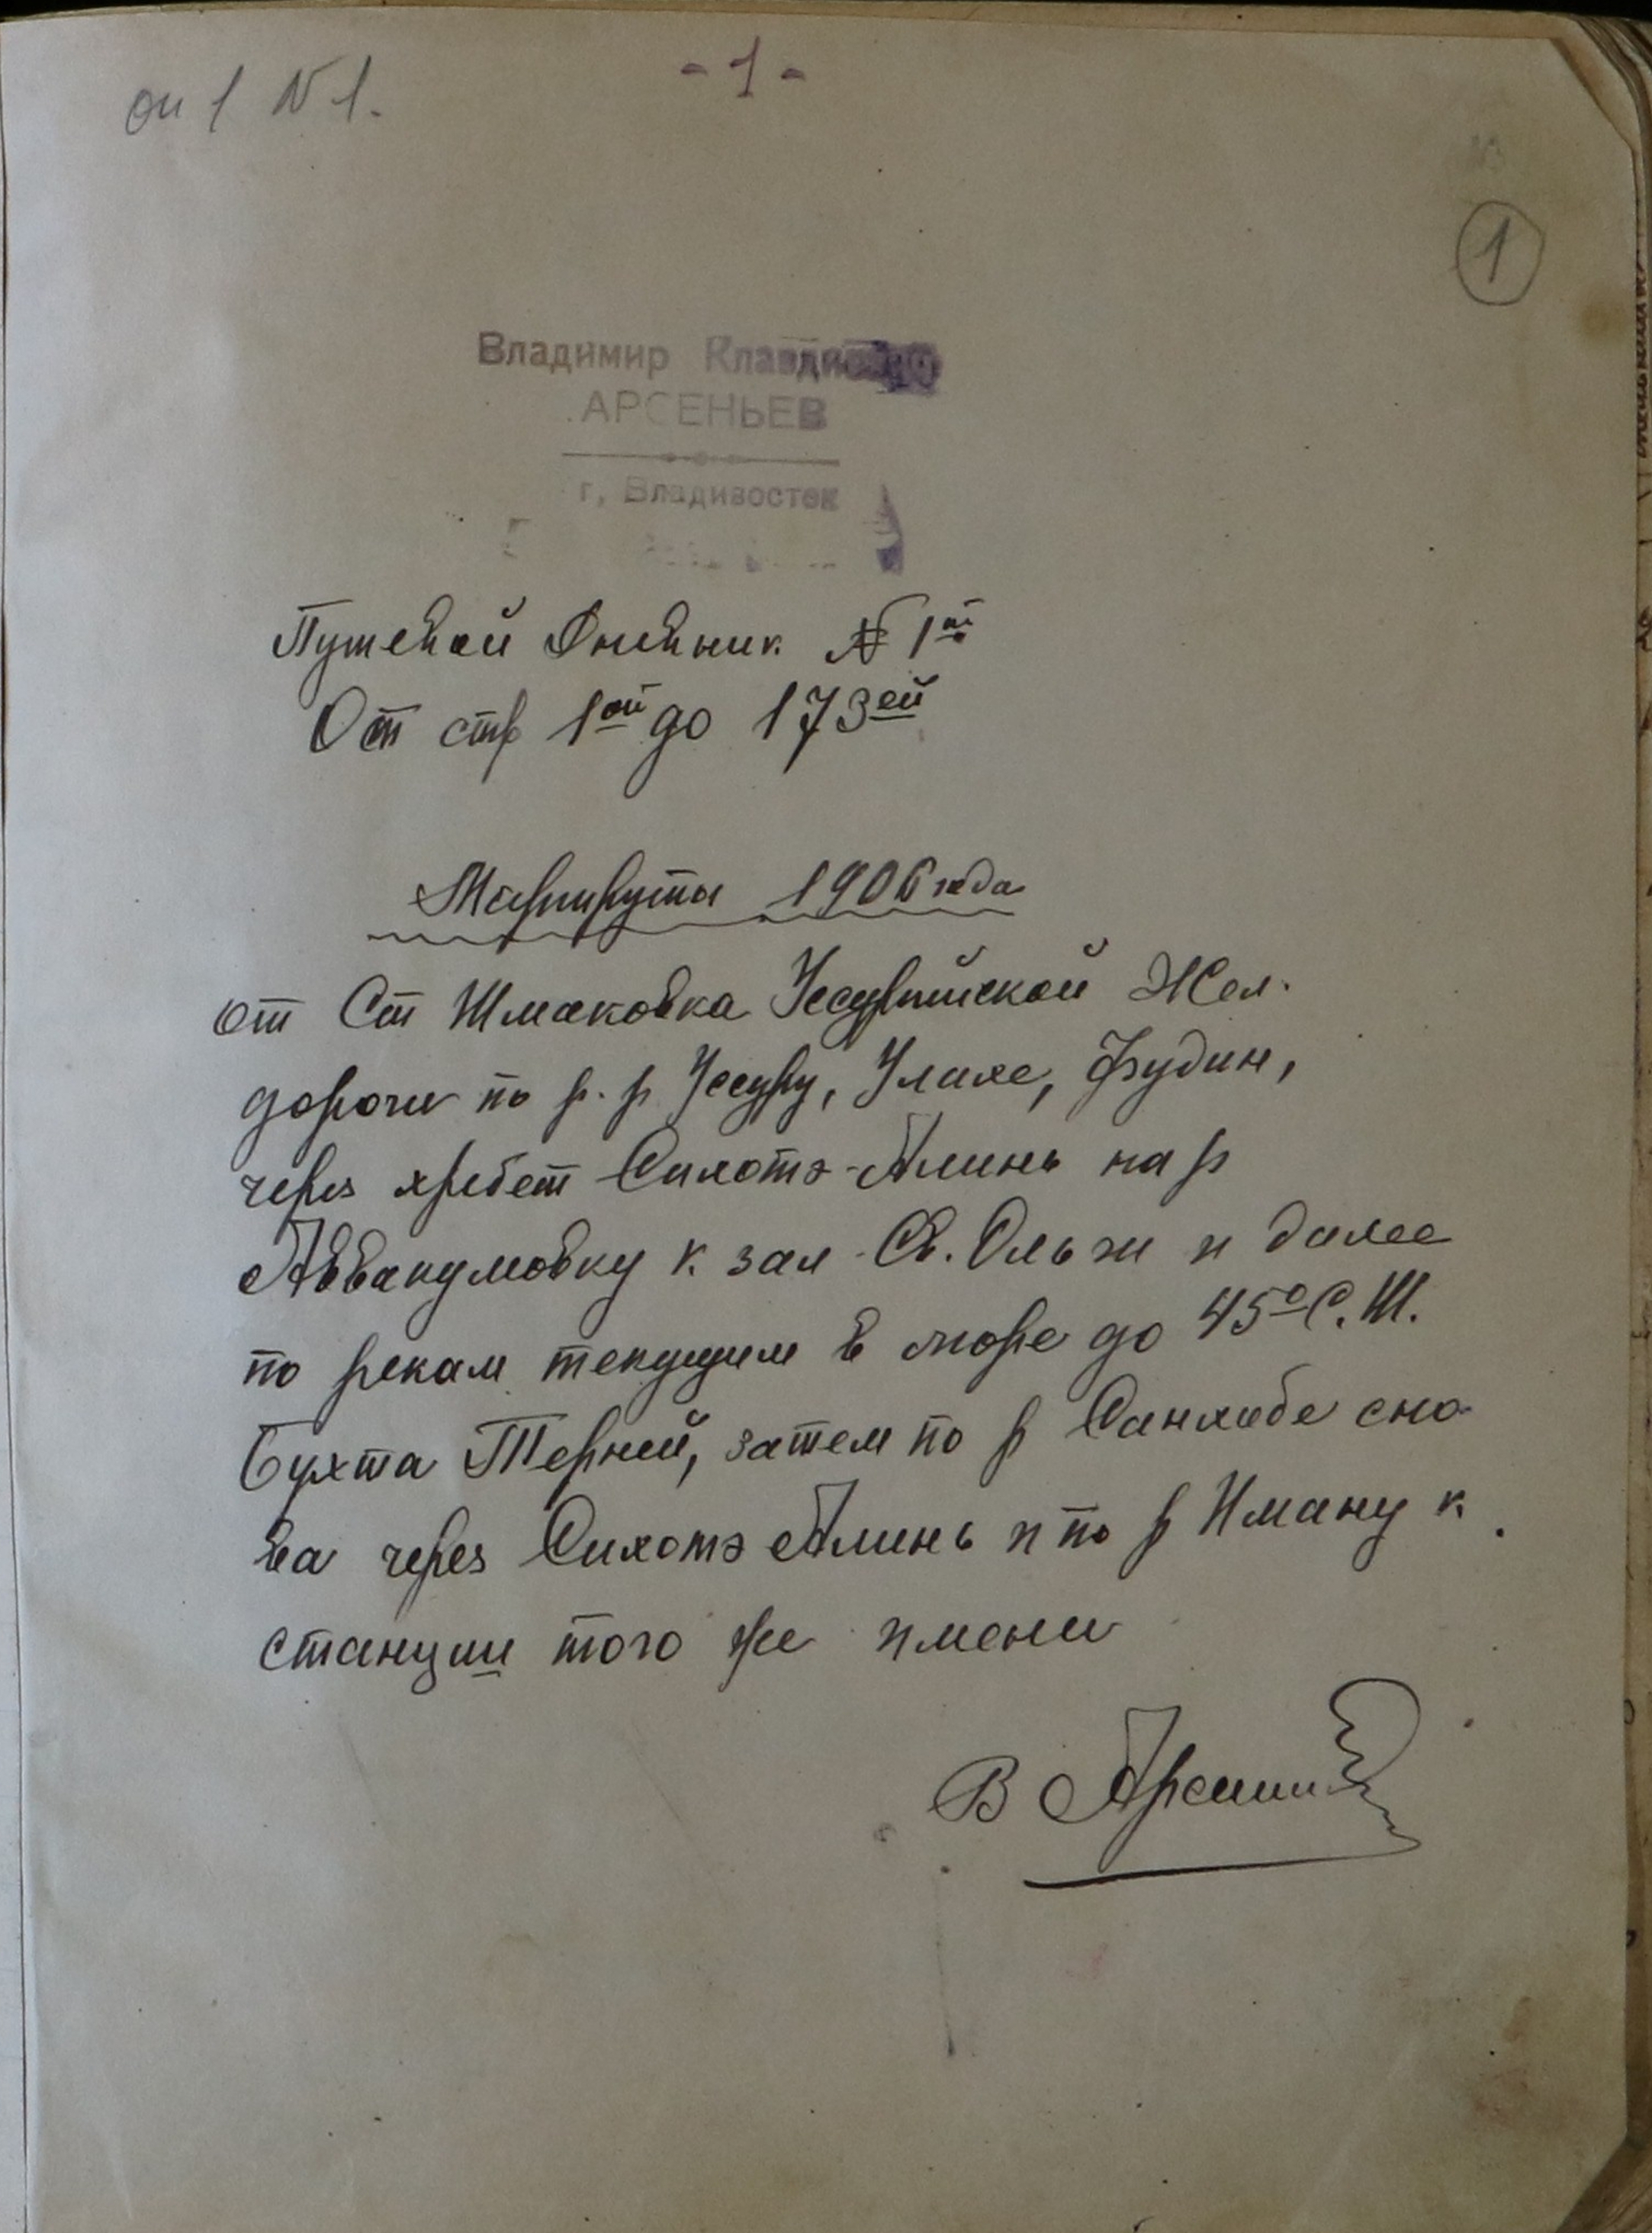 оп 1 N 1.
- 1 -
1
Владимир Клавдиевич
АРСЕНЬЕВ
г, Владивосток
Путевой Дневник № 1ой
От стр 1ой до 173ей
Маршруты 1906 года
от Ст Шмаковка Уссурийской Жел.
дороги по р. р Уссури, Улахе, Фудин,
через хребет Сихотэ-Алинь на р
Аввакумовку к зал Св. Ольги и далее
по рекам текущим в море до 45° С. Ш.
бухта Терней, затем по р Санхобе сно-
ва через Сихотэ Алинь и по р Иману к
станции того же имени
В Арсеньев